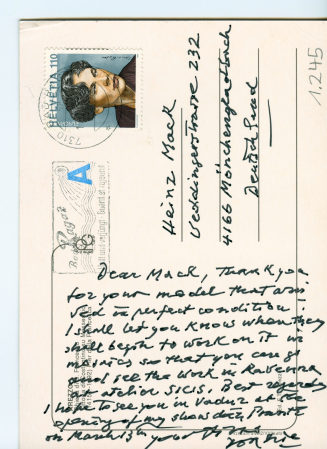 1.245
HELVETIA 110
7310
A
Bad Ragaz
Heinz Mack
Veddingerstrasse 232
4166 Mönchengladbach
Deutschland
Dear Mack, Thank you
for your model that arri-
ved in perfect condition.
I shall let you know when they
shall begin to work on it in
mosaics so that you can go
and see the work in Ravenna
at atelier SICIS. Best regards
I hope to see you in Vaduz at the
opening of my show
on March 13th your